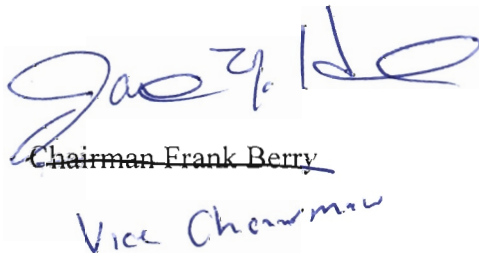 Chairman Frank Berry
Vice Chairman